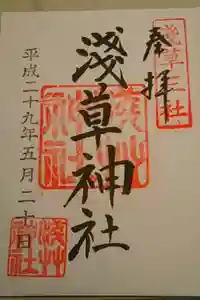 奉拝
淺草三社
淺草神社
平成二十九年五月二十日